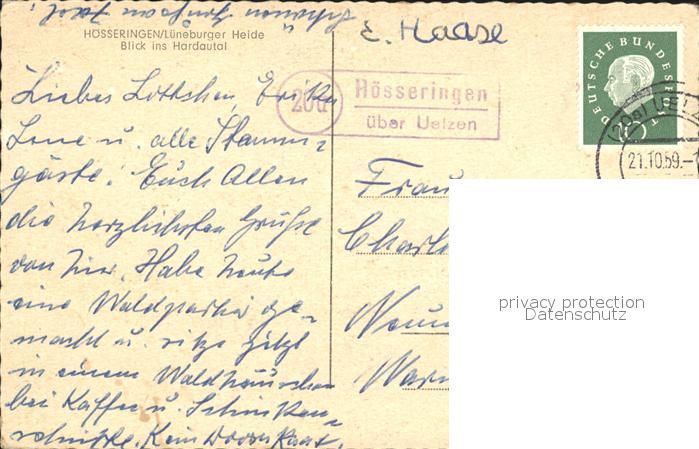 HÖSSERINGEN/Lüneburger Heide
Blick ins Hardautal
E. Haase
20a
Hösseringen
über Uelzen
DEUTSCHE BUNDESPOST
10
(20a) UELZ
21.10.59.-1
Liebes Lottchen, Erika
Lene u. alle Stamm-
gäste! Euch Allen
die herzlichsten Grüße
von hier. Habe heute
eine Waldpartie ge-
macht u. sitze jetzt
in einem Waldhäuschen
bei Kaffee u. Schinken-
schnitte. Kein
Frau
Charl
Neum
privacy protection
Datenschutz